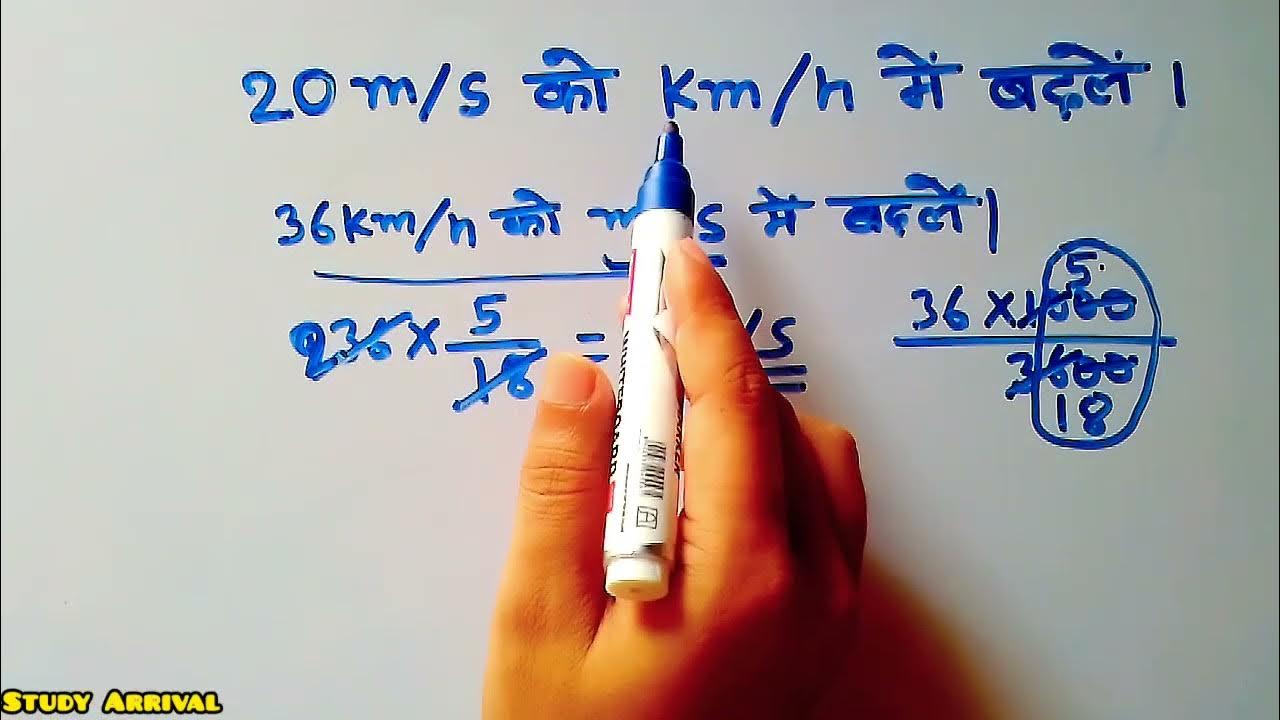 20 m/s को km/h में बदलें ।
36km/h को m s में बदलें ।
2 36 × 5/18 = /s
36 × 1000 5
3600 18
STUDY ARRIVAL